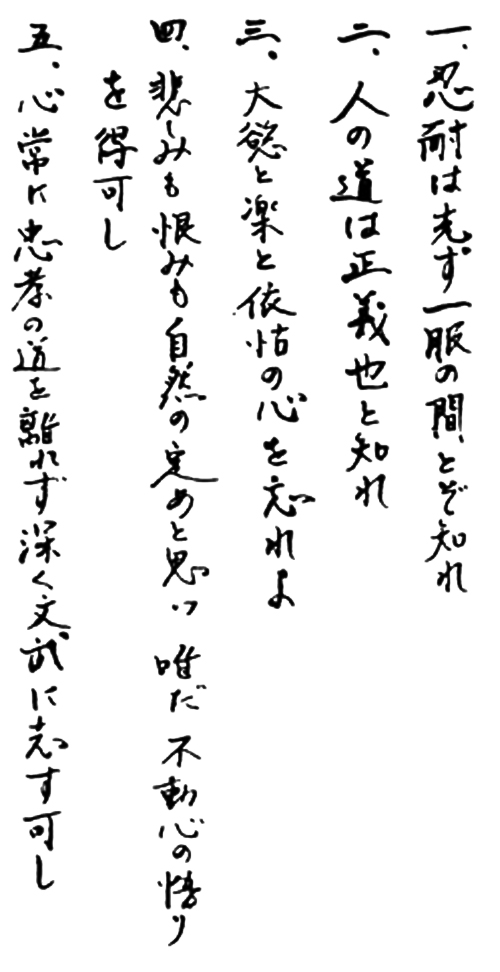 一、忍耐は先ず一服の間とぞ知れ
二、人の道は正義也と知れ
三、大慾と楽と依怙の心を忘れよ
四、悲しみも恨みも自然の定めと思ひ唯だ不動心の悟り
を得可し
五、心常に忠孝の道を離れず深く文武に志す可し